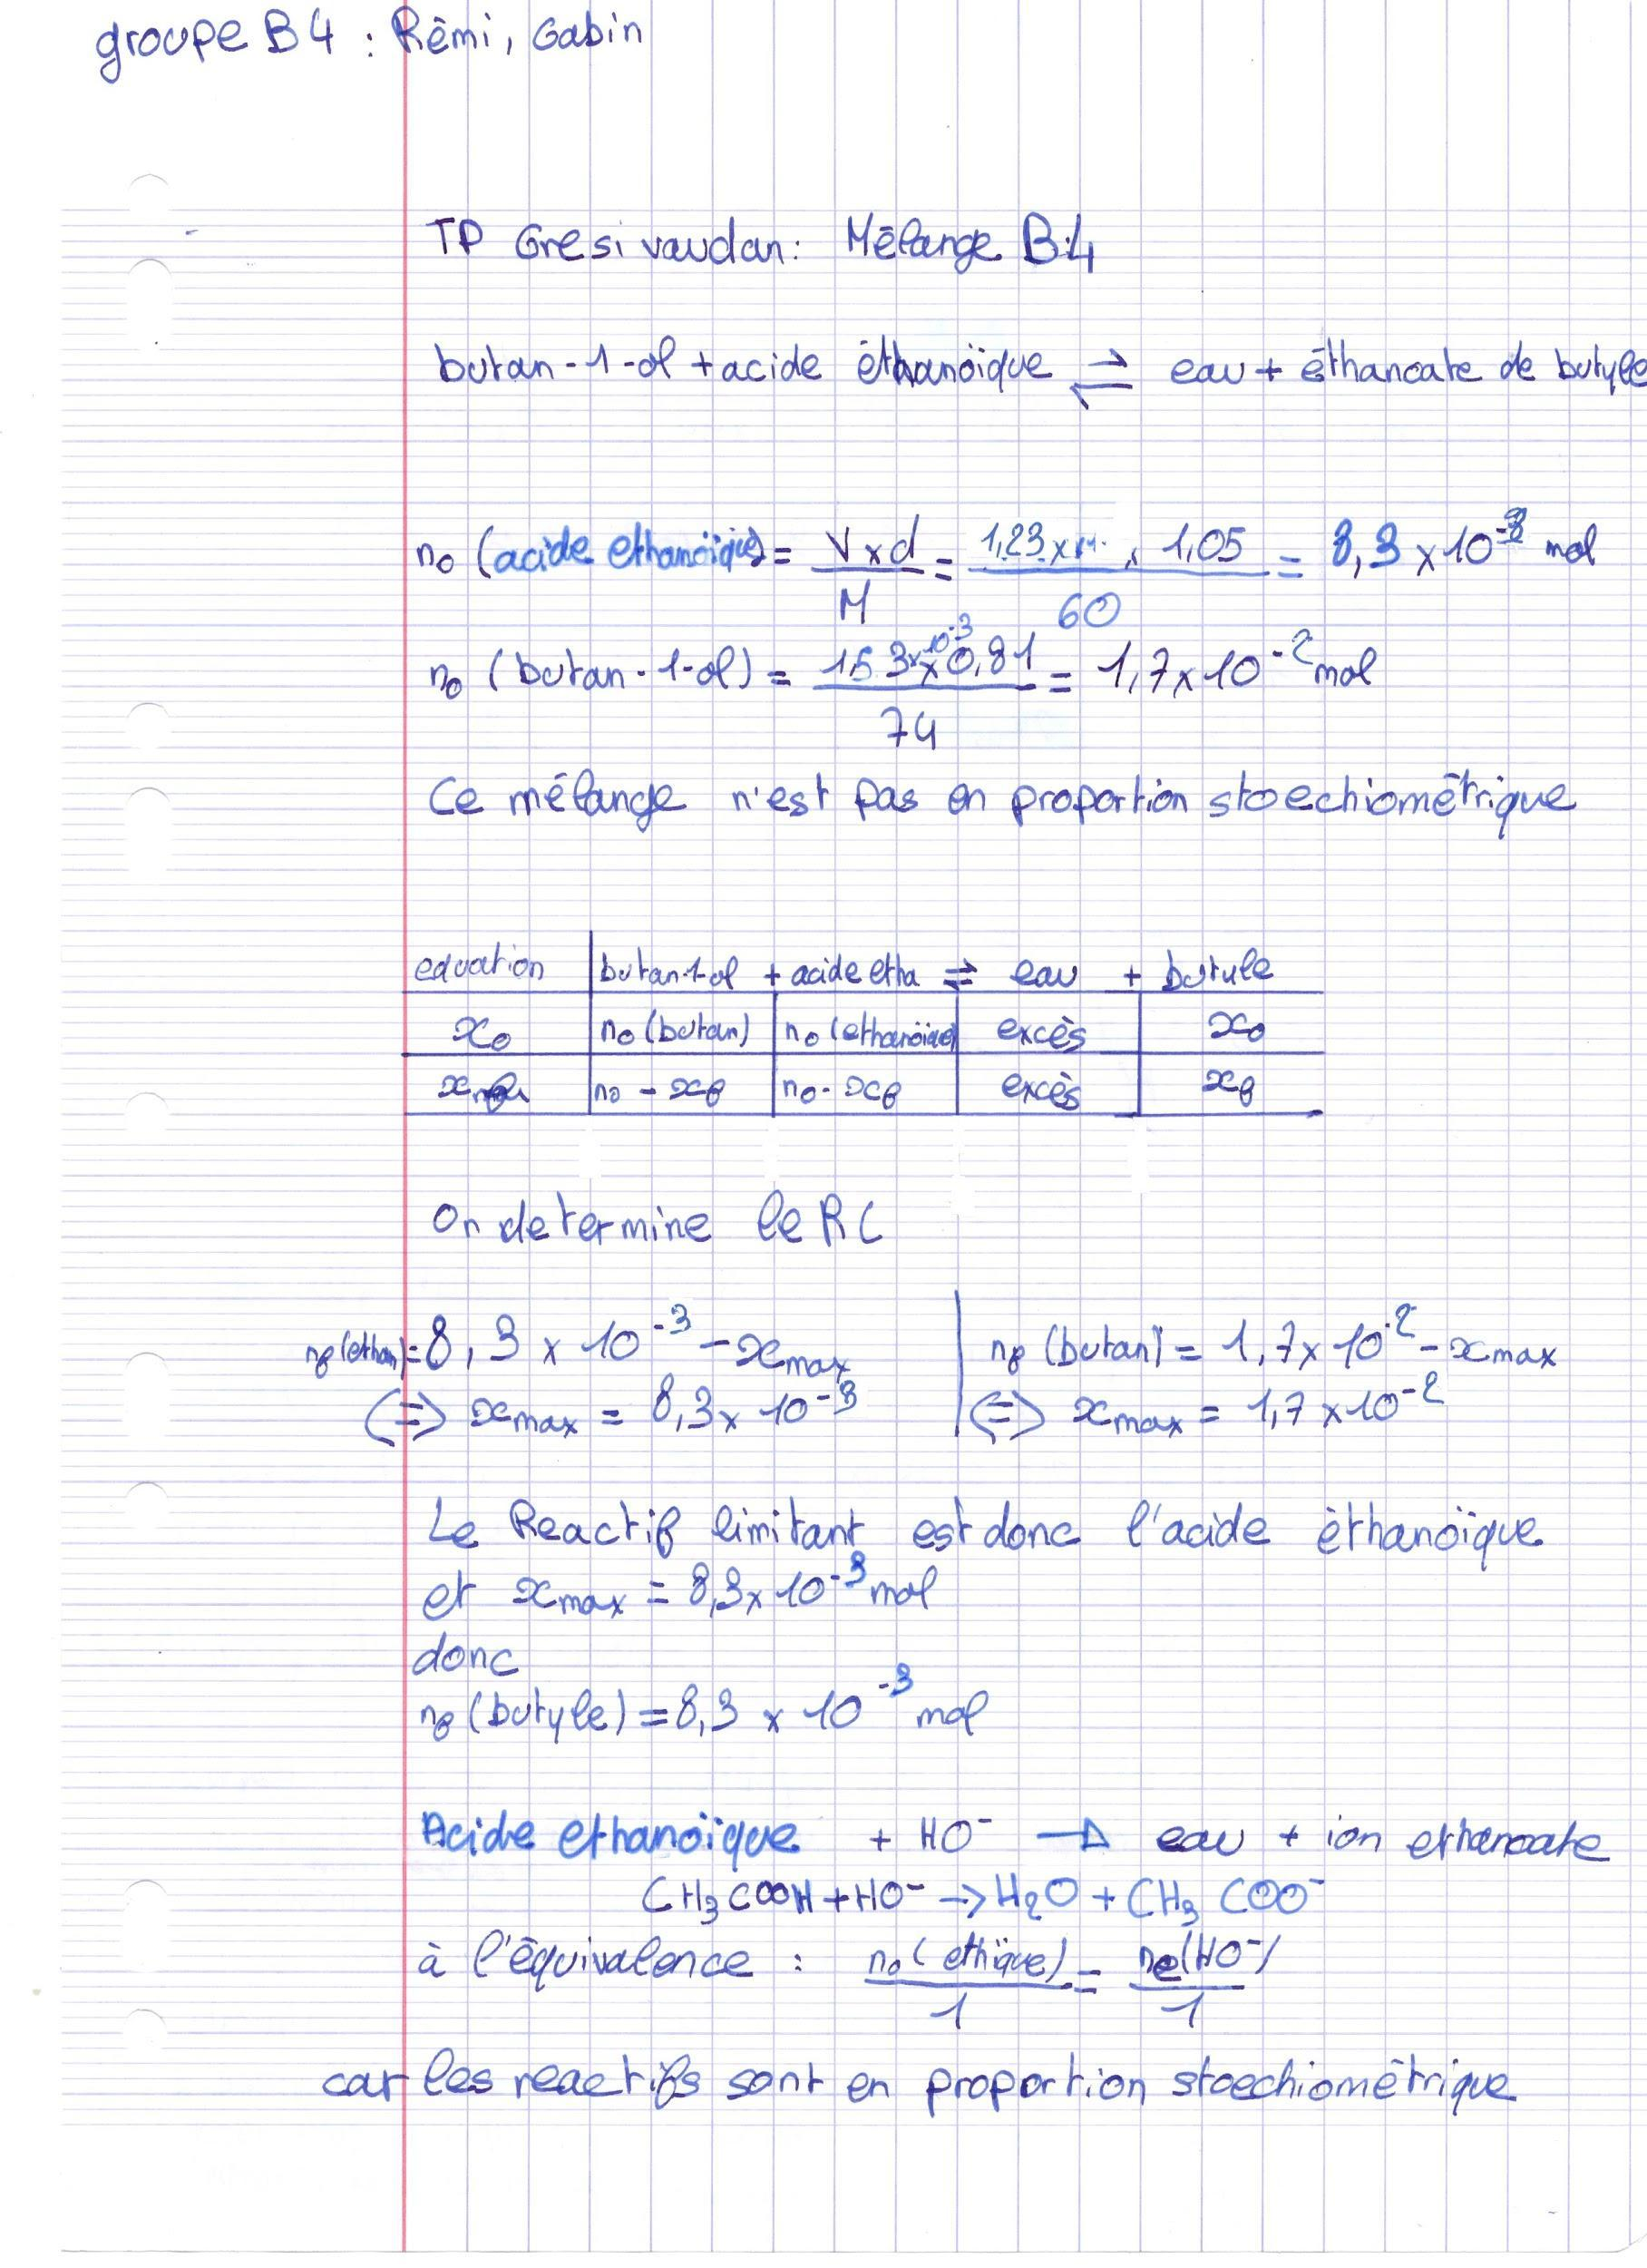 groupe B4 : Rémi, Gabin
TP Gresivaudan: Mélange B4
butan-1-ol + acide éthanoïque ⇌ eau + éthanoate de butyle
n₀ (acide ethanoïque) = V x d / M = 1,23 x 1,05 / 60 = 8,3 x 10⁻³ mol
n₀ (butan-1-ol) = 1,53 x 10⁻³ x 0,81 / 74 = 1,7 x 10⁻² mol
Ce mélange n'est pas en proportion stoechiométrique
equation | butan-1-ol + acide etha ⇌ eau + butyle
x₀ | n₀ (butan) | n₀ (ethanoïque) | excès | x₀
n₀ - xf | n₀ - xf | excès | xf
On determine le RC
nf (ethan) = 8,3 x 10⁻³ - xmax | nf (butan) = 1,7 x 10⁻² - xmax
(=) xmax = 8,3 x 10⁻³ | (=) xmax = 1,7 x 10⁻²
Le Reactif limitant est donc l'acide éthanoïque
et xmax = 8,3 x 10⁻³ mol
donc
nf (butyle) = 8,3 x 10⁻³ mol
Acide ethanoïque + HO⁻ → eau + ion ethanoate
CH₃COOH + HO⁻ → H₂O + CH₃COO⁻
à l'équivalence : n₀ (ethïque) / 1 = ne (HO⁻) / 1
car les reactifs sont en proportion stoechiométrique